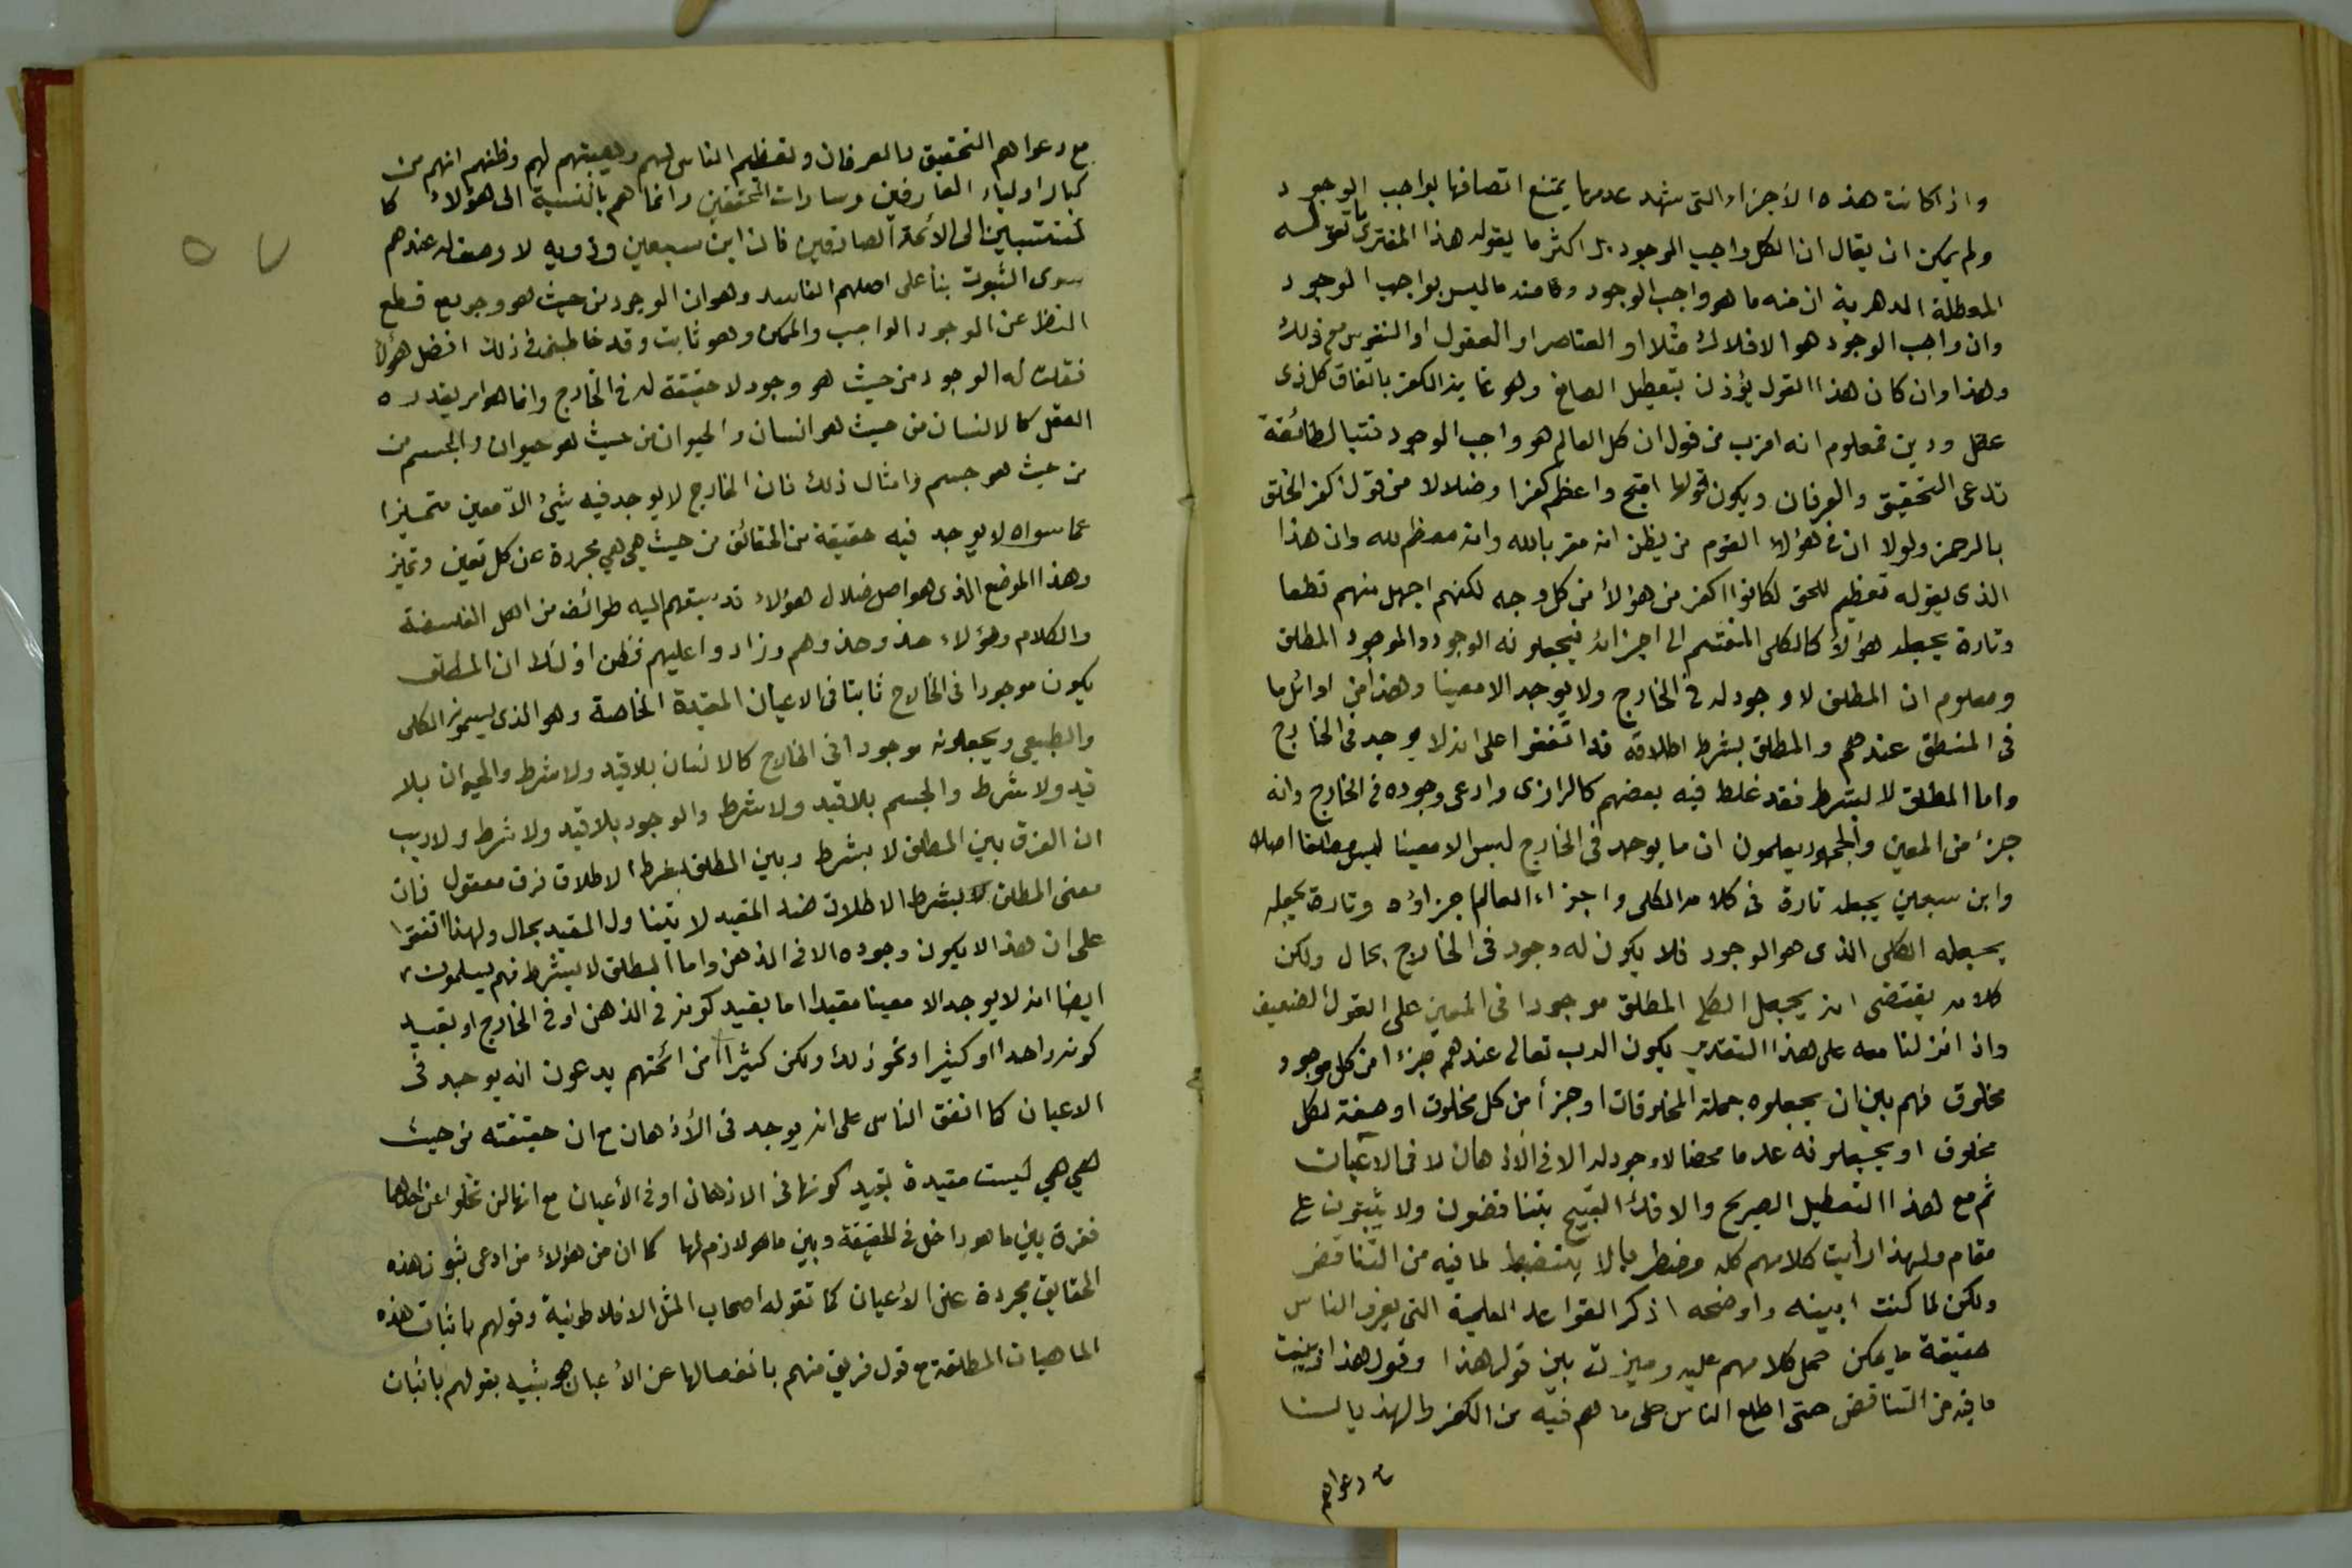 واذا كانت هذه الأجزاء التى شهد عدمها يمتنع اتصافها بواجب الوجود
ولم يمكن ان يقال ان الكل واجب الوجود بل اكثر ما يقوله هذا المفترى ما تقوله
المعطلة الدهرية ان منه ما هو واجب الوجود ومنه ما ليس بواجب الوجود
وان واجب الوجود هو الافلاك مثلا او العناصر او العقول او النفوس مع ذلك
وهذا وان كان هذا القول يؤذن بتعطيل الصانع وهو غاية الكفر باتفاق كل ذى
عقل ودين فمعلوم انه اقرب من قول ان كل العالم هو واجب الوجود فتبا لطائفة
تدعى التحقيق والعرفان ويكون قولها اقبح واعظم كفرا وضلالا من قول اكفر الخلق
بالرحمن ولولا ان فى هؤلاء القوم من يظن انه مقر بالله وانه معظم لله وان هذا
الذى يقوله تعظيم للحق لكانوا اكفر من هؤلاء من كل وجه لكنهم اجهل منهم قطعا
وتارة يجعله هؤلاء كالكلى المنقسم الى اجزائه فيجعلونه الوجود والموجود المطلق
ومعلوم ان المطلق لا وجود له فى الخارج ولا يوجد الا معينا وهذا من اوائل ما
فى المنطق عندهم والمطلق بشرط اطلاقه قد اتفقوا على انه لا يوجد فى الخارج
واما المطلق لا بشرط فقد غلط فيه بعضهم كالرازى وادعى وجوده فى الخارج وانه
جزء من المعين والجمهور يعلمون ان ما يوجد فى الخارج ليس الا معينا ليس مطلقا اصلا
وابن سبعين يجعله تارة فى كلامه الكلى واجزاء العالم اجزاؤه وتارة يجعله
يجعله الكلى الذى هو الوجود فلا يكون له وجود فى الخارج بحال ولكن
كلامه يقتضى انه يجعل الكلى المطلق موجودا فى المعين على القول الضعيف
واذا انزلنا معه على هذا التقدير يكون الرب تعالى عندهم جزءا من كل موجود
مخلوق فهم بين ان يجعلوه جملة المخلوقات او جزأ من كل مخلوق او صفة لكل
مخلوق او يجعلونه عدما محضا لا وجود له الا فى الاذهان لا فى الاعيان
ثم مع هذا التعطيل الصريح والافك القبيح يتناقضون ولا يثبتون على
مقام ولهذا رأيت كلامهم كله مضطربا لا ينضبط لما فيه من التناقض
ولكن لما كنت ابينه واوضحه اذكر القواعد العلمية التى يعرف الناس
حقيقة ما يمكن حمل كلامهم عليه وميزت بين قول هذا وقول هذا وبينت
ما فيه من التناقض حتى اطلع الناس على ما هم فيه من الكفر والهذيان
مع دعواهم
مع دعواهم التحقيق والعرفان وتعظيم الناس لهم وهيبتهم لهم وظنهم انهم من
كبار اولياء العارفين وسادات المحققين وانما هم بالنسبة الى هؤلاء كا
لمنتسبين الى الأئمة الصادقين فان ابن سبعين وذويه لا وصف له عندهم
سوى الثبوت بنأ على اصلهم الفاسد وهو ان الوجود من حيث هو وجود مع قطع
النظر عن الوجود الواجب والممكن وهو ثابت وقد خاطبنى فى ذلك افضل هؤلاء
فقلت له الوجود من حيث هو وجود لا حقيقة له فى الخارج وانما هو امر يقدره
العقل كالانسان من حيث هو انسان والحيوان من حيث هو حيوان والجسم من
من حيث هو جسم وامثال ذلك فان الخارج لا يوجد فيه شيئ الا معين متميزا
عما سواه لا يوجد فيه حقيقة من الحقائق من حيث هى هى مجردة عن كل تعين وتميز
وهذا الموضع الذى هو اصل ضلال هؤلاء قد سبقهم اليه طوائف من اهل الفلسفة
والكلام وهؤلاء حذوا حذوهم وزادوا عليهم فظن اولئك ان المطلق
يكون موجودا فى الخارج ثابتا فى الاعيان المقيدة الخاصة وهو الذى يسمونه الكلى
والطبيعى ويجعلونه موجودا فى الخارج كالانسان بلا قيد ولا شرط والحيوان بلا
قيد ولا شرط والجسم بلا قيد ولا شرط والوجود بلا قيد ولا شرط ولا ريب
ان الفرق بين المطلق لا بشرط وبين المطلق بشرط الاطلاق فرق معقول فان
معنى المطلق بشرط الاطلاق ضد المقيد لا يتناول المقيد بحال ولهذا اتفقوا
على ان هذا لا يكون وجوده الا فى الذهن واما المطلق لا بشرط فهم يسلمون
ايضا انه لا يوجد الا معينا مقيدا اما بقيد كونه فى الذهن او فى الخارج او بقيد
كونه واحدا او كثيرا ونحو ذلك ولكن كثيرا من ائمتهم يدعون انه يوجد فى
الاعيان كما اتفق الناس على انه يوجد فى الأذهان مع ان حقيقته من حيث
هى هى ليست مقيدة بقيد كونها فى الاذهان او فى الأعيان مع انها لن تخلوا عن احدهما
ففرق بين ما هو داخل فى الحقيقة وبين ما هو لازم لها كما ان من هؤلاء من ادعى ثبوت هذه
الحقايق مجردة عن الأعيان كما تقوله اصحاب المثل الافلاطونية وقولهم باثبات هذه
الماهيات المطلقة مع قول فريق منهم بانفصالها عن الأعيان هو شبيه بقولهم باثبات